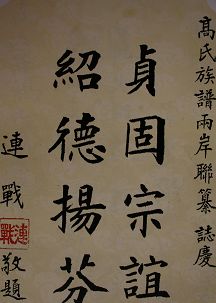 高氏族譜兩岸聯纂誌慶
貞固宗誼
紹德揚芬
連戰敬題
連戰